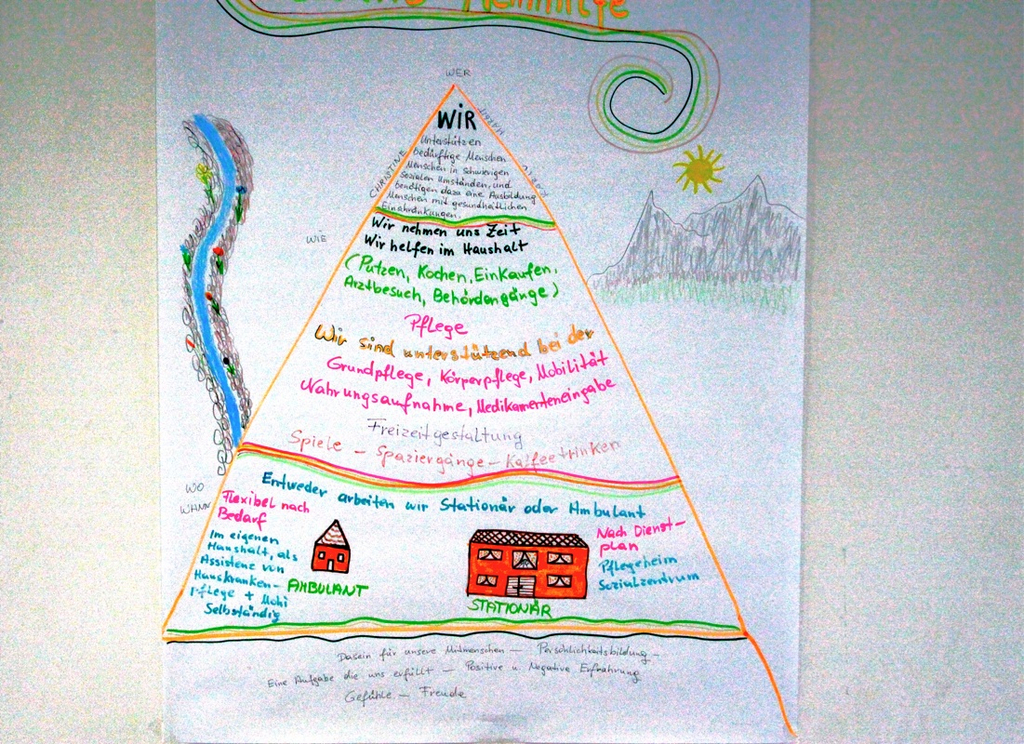 Heimhilfe
WER
WIR
Unterstützen
Bedürftige Menschen
Menschen in Schwierigen
Sozialen Umständen, und
benötigen dazu eine Ausbildung
Menschen mit gesundheitlichen
Einschränkungen.
CHRISTINE
WIE
Wir nehmen uns Zeit
Wir helfen im Haushalt
(Putzen, Kochen, Einkaufen,
Arztbesuch, Behördengänge)
Pflege
Wir sind unterstützend bei der
Grundpflege, Körperpflege, Mobilität
Nahrungsaufnahme, Medikamenteneingabe
Freizeitgestaltung
Spiele - Spaziergänge - Kaffeetrinken
WO
WANN
Entweder arbeiten wir Stationär oder Ambulant
Flexibel nach
Bedarf
Im eigenen
Haushalt, als
Assistenz von
Hauskranken-
Pflege + Mohi
Selbständig
AMBULANT
STATIONÄR
Nach Dienst-
plan
Pflegeheim
Sozialzentrum
Dasein für unsere Mitmenschen - Persönlichkeitsbildung -
Eine Aufgabe die uns erfüllt - Positive u. Negative Erfahrung
Gefühle - Freude